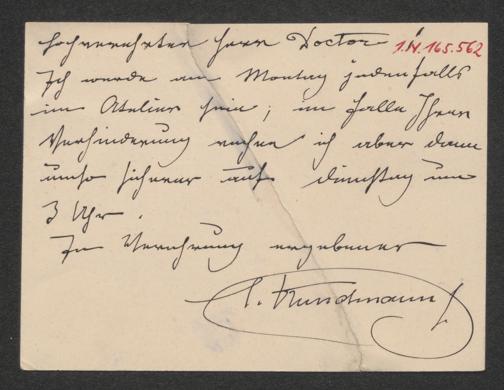 Hochverehrter Herr Doctor! I.N. 165.562
Ich werde am Montag jedenfalls
im Atelier sein; im Falle Ihrer
Verhinderung rechne ich aber dann
umso sicherer auf Dienstag um
3 Uhr.
In Verehrung ergebener
C. Kundmann